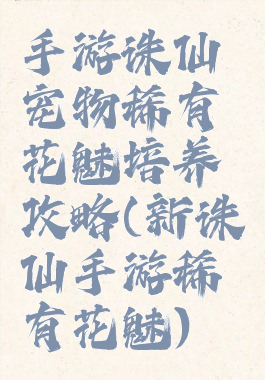 手游诛仙
宠物稀有
花魅培养
攻略(新诛
仙手游稀
有花魅)